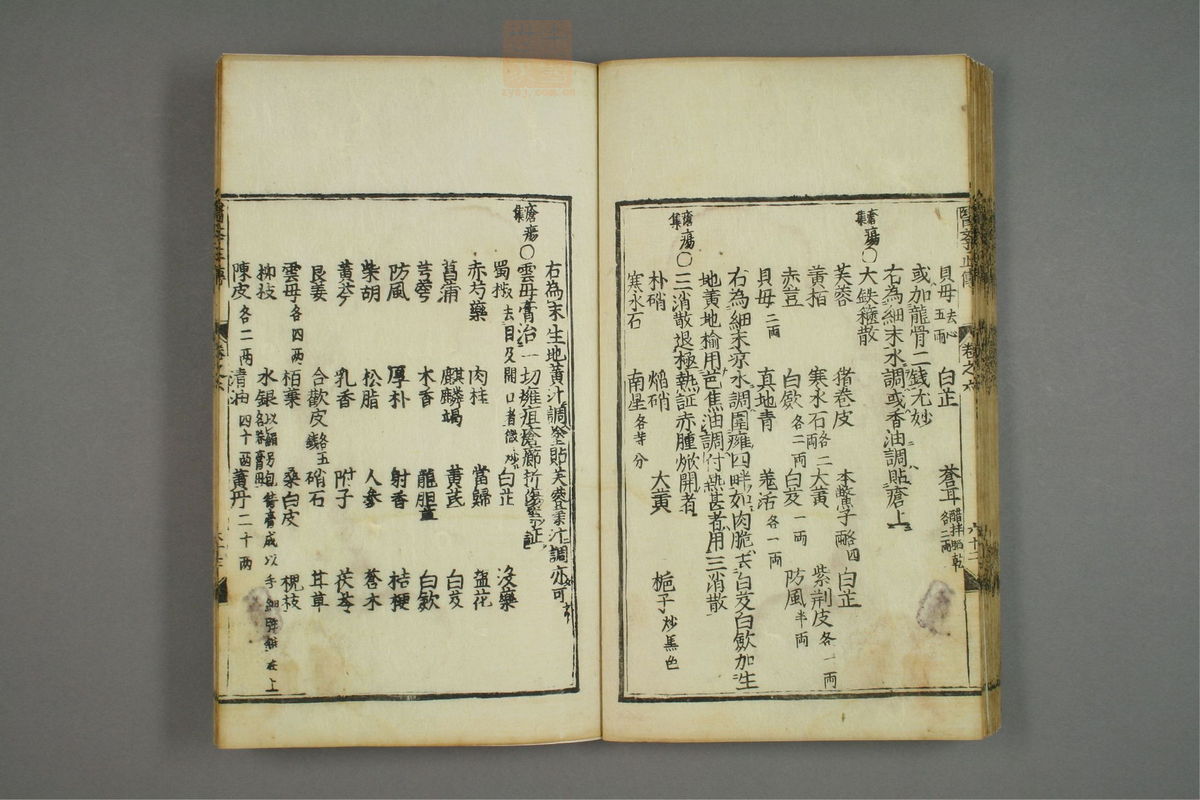 貝母去心五兩 白芷 蒼耳醋拌晒乾各二兩
或加龍骨二錢尤妙
右為細末水調或香油調貼瘡上
瘡瘍集〇大鉄箍散
芙蓉 猪卷皮 木鱉子四兩 白芷
黃柏 寒水石各二兩 大黃 紫荊皮各一兩
赤豆 白歛各二兩 白芨一兩 防風半兩
貝母二兩 真地青 羗活各一兩
右為細末凉水調圍癰四畔如肉脆去白芨白歛加生
地黃地榆用芭焦油調付熱甚者用三消散
瘡瘍集〇三消散退極熱証赤腫焮開者
朴硝 焰硝 大黃 梔子炒黑色
寒水石 南星各等分
右為末生地黃汁調塗貼芙蓉葉汁調亦可
瘡瘍集〇雲母膏治一切癰疽瘡癤折傷等証
蜀椒去目及開口者微炒 白芷 沒藥
赤芍藥 肉桂 當歸 塩花
菖蒲 麒麟竭 黃芪 白芨
芎藭 木香 龍胆草 白歛
防風 厚朴 射香 桔梗
柴胡 松脂 人參 蒼木
黃芩 乳香 附子 茯苓
良姜 合歡皮各五錢 硝石 甘草
雲母各四兩 栢葉 桑白皮 槐枝
柳枝 水銀以絹另包
陳皮各二兩 清油四十兩 黃丹二十兩
醫學正傳 卷之六